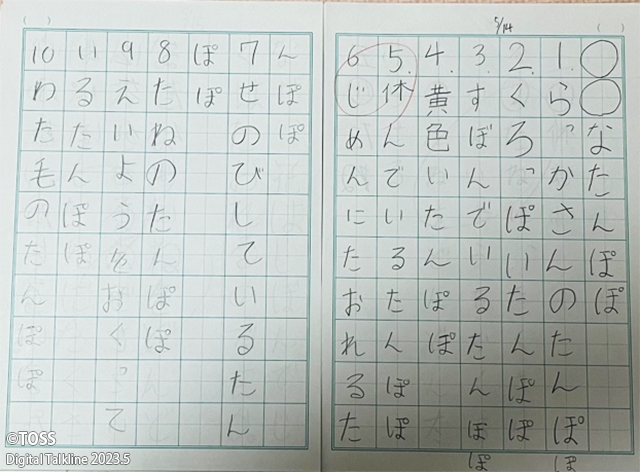 5/14
○○なたんぽぽ
1.らっかさんのたんぽぽ
2.くろっぽいたんぽぽ
3.すぼんでいるたんぽぽ
4.黄色いたんぽぽ
5.休んでいるたんぽぽ
6じめんにたおれるた
んぽぽ
7せのびしているたん
ぽぽ
8たねのたんぽぽ
9えいようをおくって
いるたんぽぽ
10わた毛のたんぽぽ
©TOSS
DigitalTalkline 2023.5